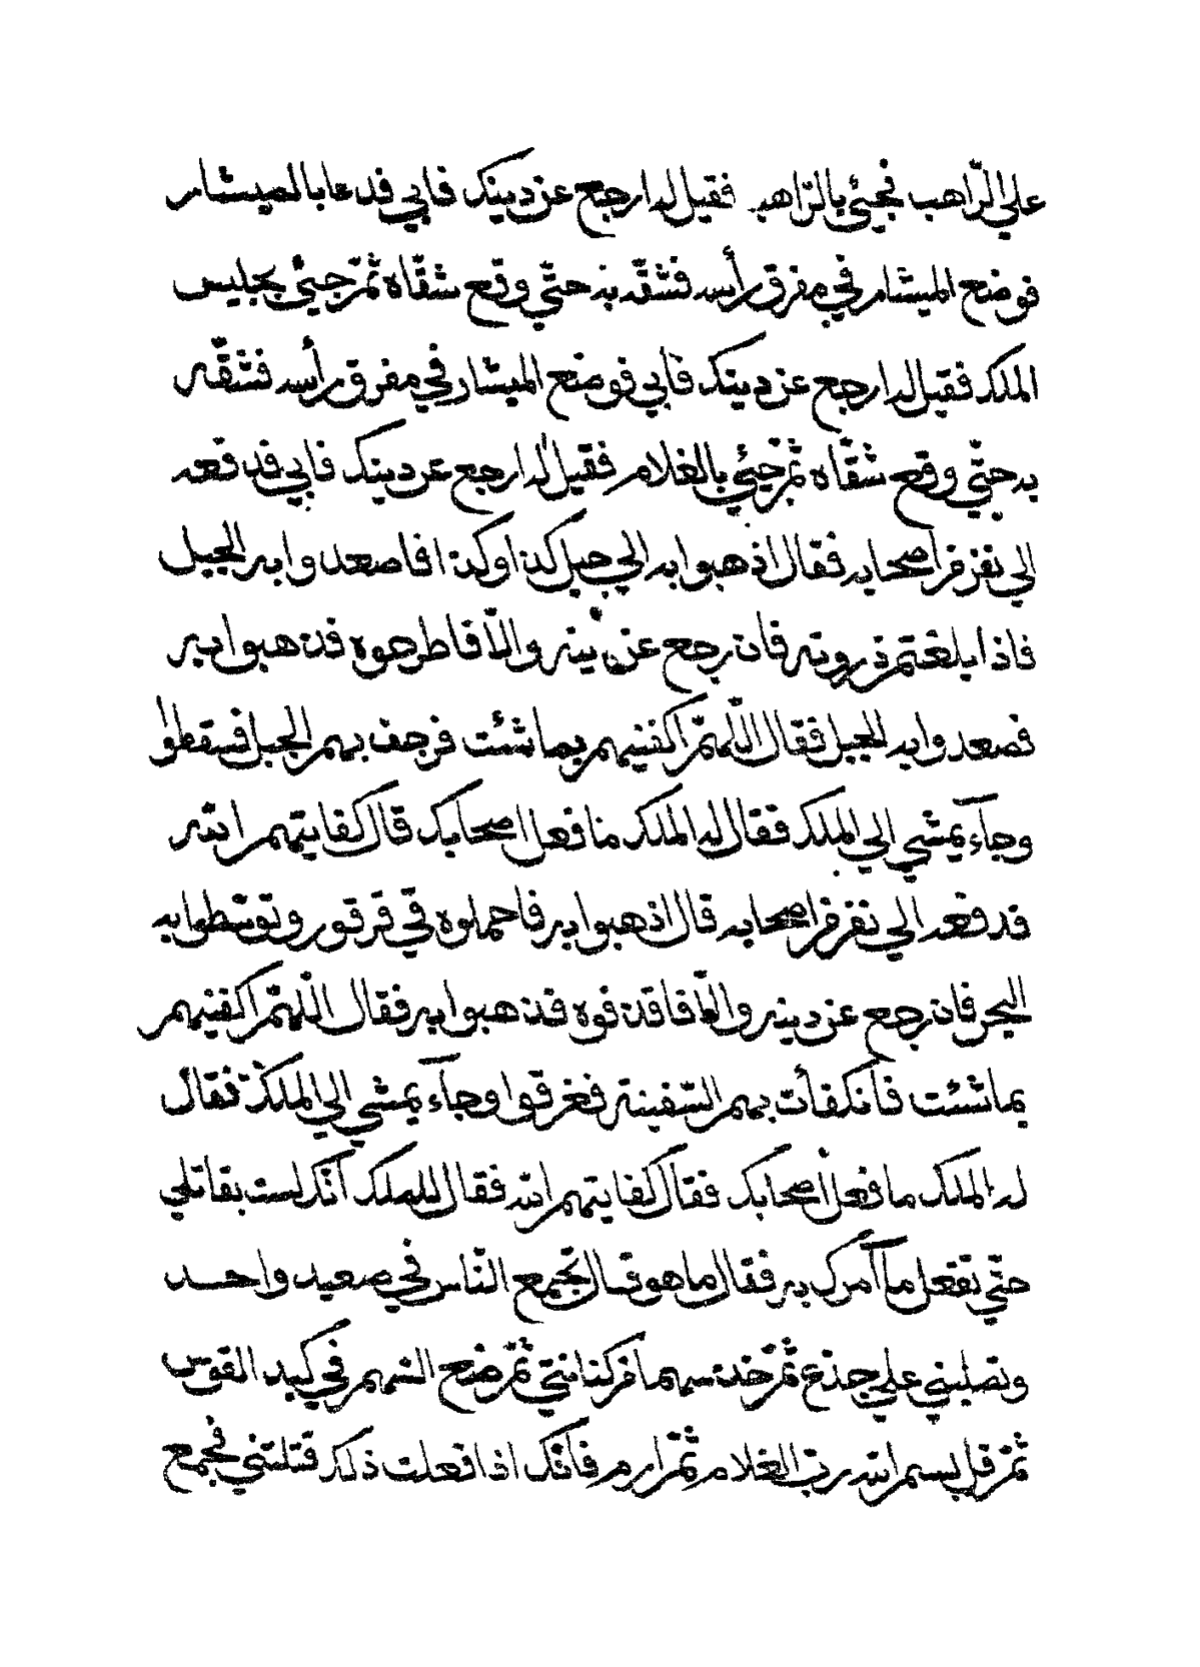 علي الرّاهب فجئ بالرّاهب فقيل له ارجع عن دينك فابي فدعا بالميشار
فوضع الميشار في مفرق رأسه فشقّه به حتّي وقع شقّاه ثمّ جئ بجليس
الملك فقيل له ارجع عن دينك فابي فوضع الميشار في مفرق رأسه فشقّه
به حتّي وقع شقّاه ثمّ جئ بالغلام فقيل له ارجع عن دينك فابي فدفعه
الي نفر من اصحابه فقال اذهبوا به الي جبل كذا وكذا فاصعدوا به الجبل
فاذا بلغتم ذروته فان رجع عن دينه والّا فاطرحوه فذهبوا به
فصعدوا به الجبل فقال اللّهمّ اكفنيهم بما شئت فرجف بهم الجبل فسقطوا
وجآء يمشي الي الملك فقال له الملك ما فعل اصحابك قال كفانيهم الله
فدفعه الي نفر من اصحابه قال اذهبوا به فاحملوه في قرقور وتوسّطوا به
البحر فان رجع عن دينه والّا فاقذفوه فذهبوا به فقال اللّهمّ اكفنيهم
بما شئت فانكفأت بهم السّفينة فغرقوا وجآء يمشي الي الملك فقال
له الملك ما فعل اصحابك فقال كفانيهم الله فقال للملك انّك لست بقاتلي
حتّي تفعل مآ آمرك به فقال ما هو قال تجمع النّاس في صعيد واحد
وتصلبني علي جذع ثمّ خذ سهما من كنانتي ثمّ ضع السّهم في كبد القوس
ثمّ قل بسم الله ربّ الغلام ثمّ ارم فانّك اذا فعلت ذلك قتلتني فجمع